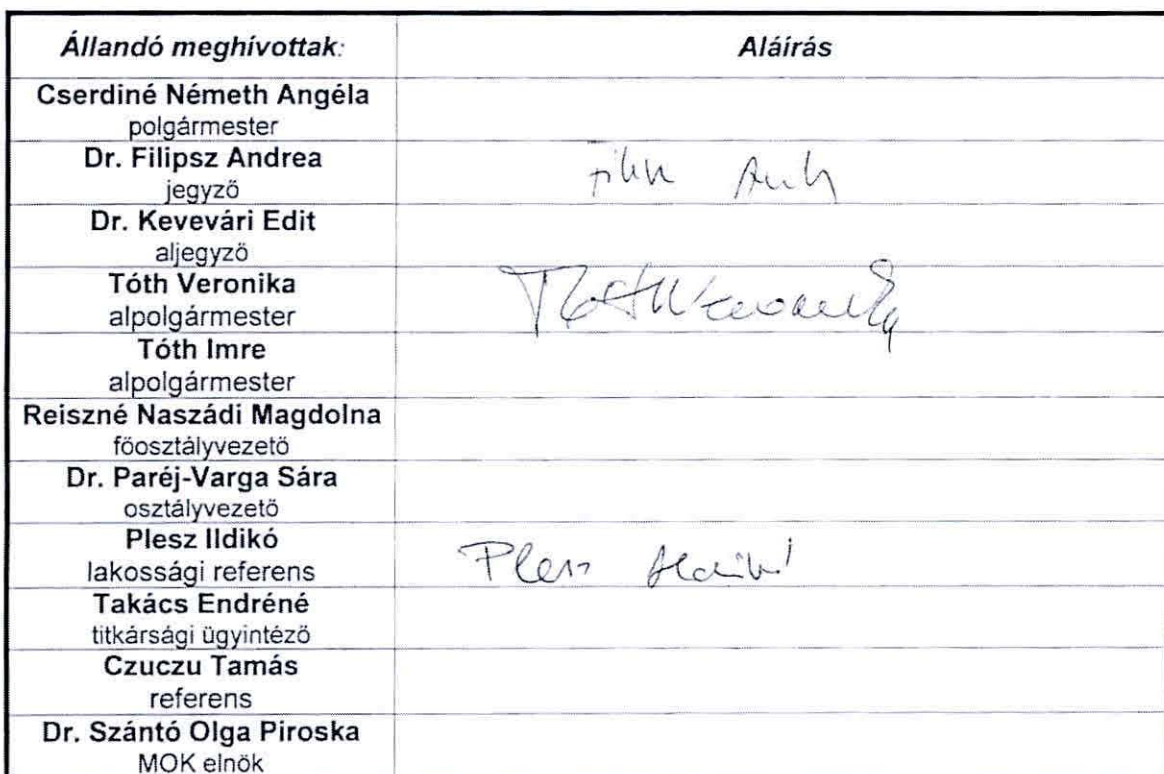 Állandó meghívottak: Aláírás
Cserdiné Németh Angéla
polgármester
Dr. Filipsz Andrea
jegyző
Dr. Kevevári Edit
aljegyző
Tóth Veronika
alpolgármester
Tóth Veronika
Tóth Imre
alpolgármester
Reiszné Naszádi Magdolna
főosztályvezető
Dr. Paréj-Varga Sára
osztályvezető
Plesz Ildikó
lakossági referens
Plesz Ildikó
Takács Endréné
titkársági ügyintéző
Czuczu Tamás
referens
Dr. Szántó Olga Piroska
MOK elnök